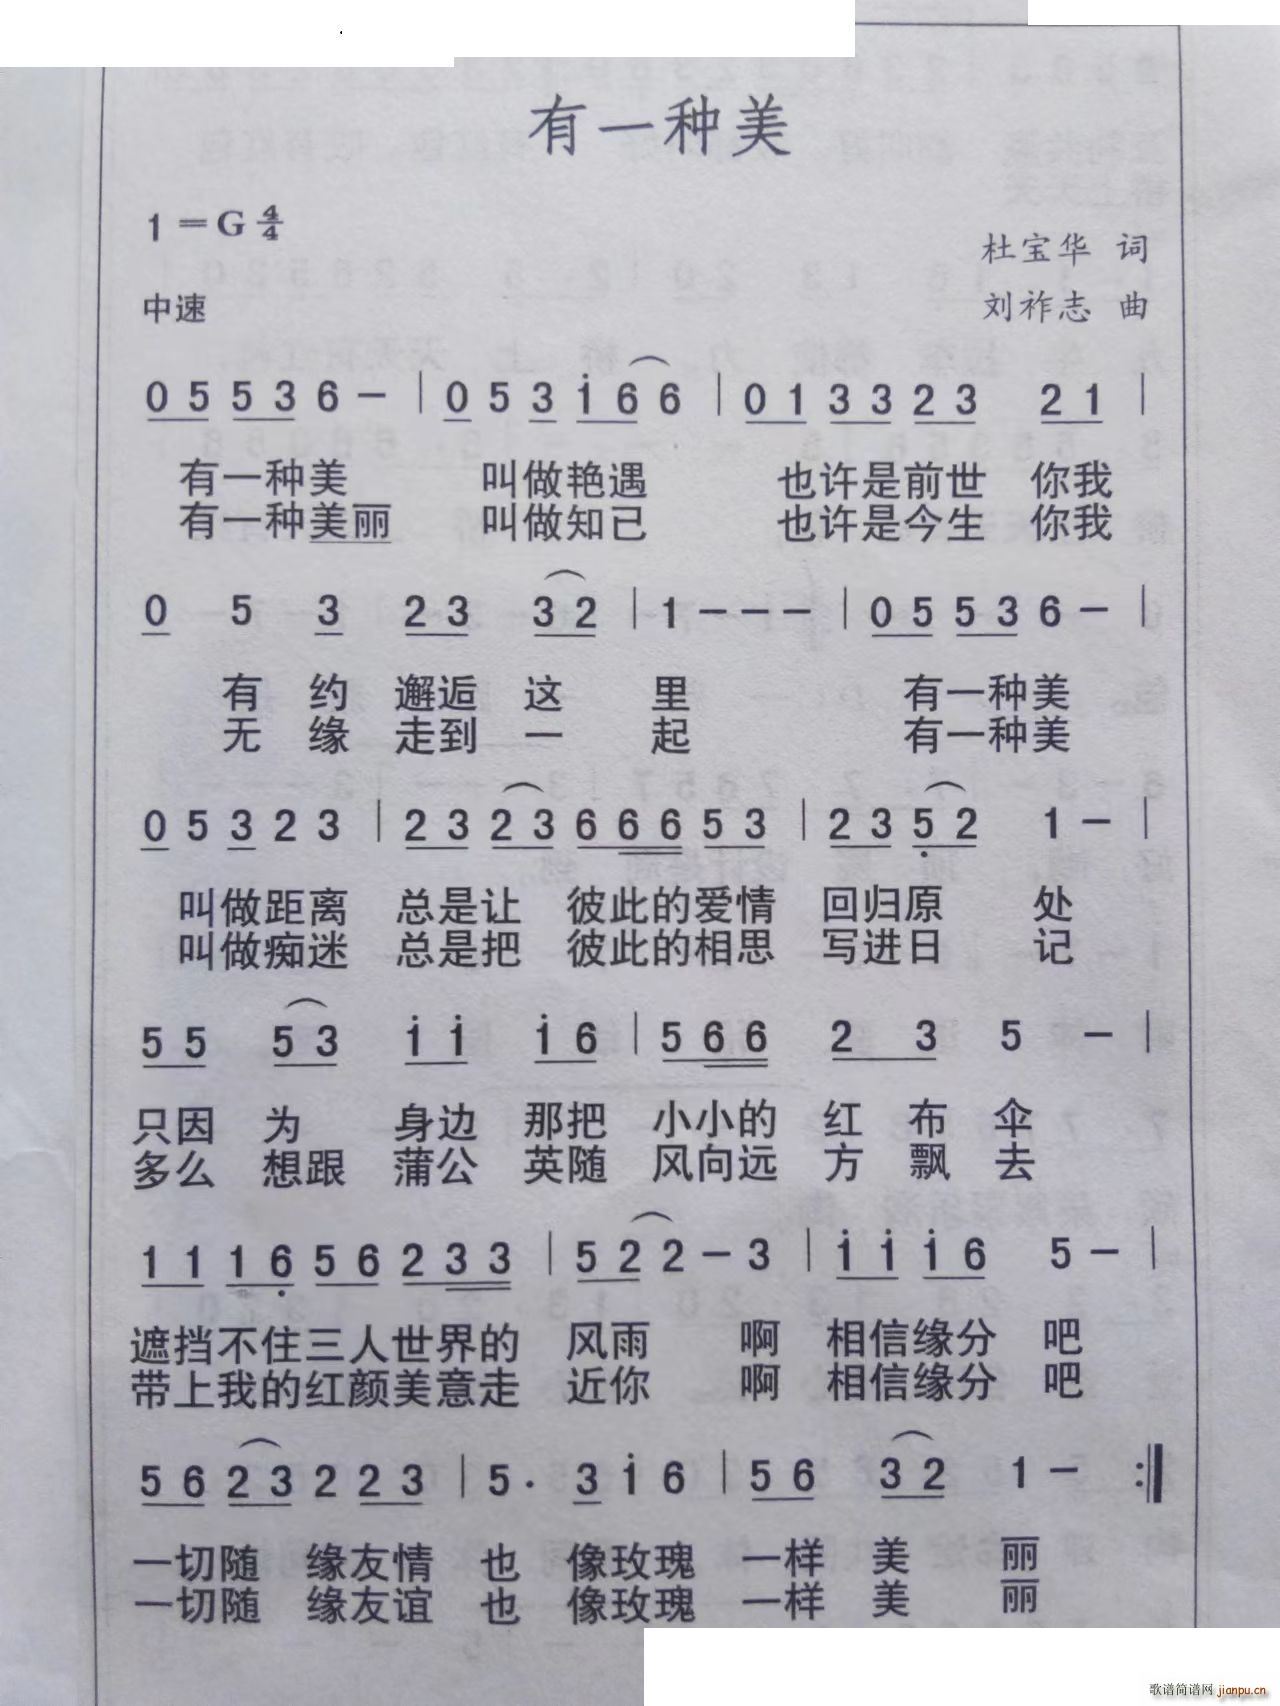 有一种美
1=G 4/4
杜宝华 词
中速
刘祚志 曲
0 5 5 3 6 － | 0 5 3 i 6 6 | 0 1 3 3 2 3 2 1 |
有一种美 叫做艳遇 也许是前世 你我
有一种美丽 叫做知已 也许是今生 你我
0 5 3 2 3 3 2 | 1 － － － | 0 5 5 3 6 － |
有 约 邂逅 这 里 有一种美
无 缘 走到 一 起 有一种美
0 5 3 2 3 | 2 3 2 3 6 6 6 5 3 | 2 3 5 2 1 － |
叫做距离 总是让 彼此的爱情 回归原 处
叫做痴迷 总是把 彼此的相思 写进日 记
5 5 5 3 i i i 6 | 5 6 6 2 3 5 － |
只因 为 身边 那把 小小的 红 布 伞
多么 想跟 蒲公 英随 风向远 方 飘 去
1 1 1 6 5 6 2 3 3 | 5 2 2 － 3 | i i i 6 5 － |
遮挡不住三人世界的 风雨 啊 相信缘分 吧
带上我的红颜美意走 近你 啊 相信缘分 吧
5 6 2 3 2 2 3 | 5 · 3 i 6 | 5 6 3 2 1 － :‖
一切随 缘友情 也 像玫瑰 一样 美 丽
一切随 缘友谊 也 像玫瑰 一样 美 丽
歌谱简谱网 jianpu.cn